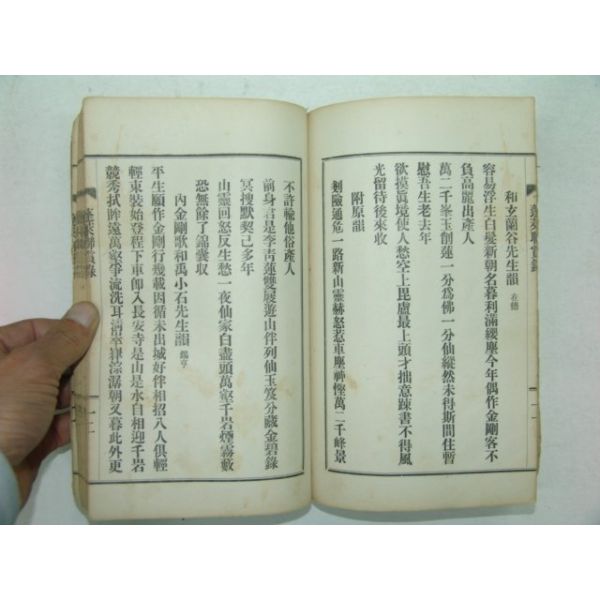 和玄蘭谷先生韻 在德
容易浮生白髮新朝名暮利滿纓塵今年偶作金剛客不
負高麗出產人
萬二千峯玉削蓮一分爲佛一分仙縱然未得斯間住暫
慰吾生老去年
欲摸眞境使人愁空上毘盧最上頭才拙意踈書不得風
光留待後來收
附原韻
剗險通危一路新山靈赫怒惹車塵神慳萬二千峰景
不許輸他俗產人
前身言是李青蓮雙屐遊山伴列仙玉笈分藏金碧錄
冥搜默契已多年
山靈回怒反生愁一夜仙家白盡頭萬壑千岩煙霧藪
恐無除了錦囊收
內金剛歌和禹小石先生韻
平生願作金剛行幾載因循未出城好伴相招入人俱輕
輕束裝始登程下車卽入長安寺是山是水自相迎千岩
競秀拭眸遠萬壑爭流洗耳淸
朝又暮此外更
蓬萊聯賞錄